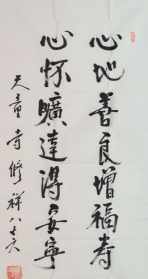 心地善良增福寿
心怀曠達得安寧
天童寺修祥八十六